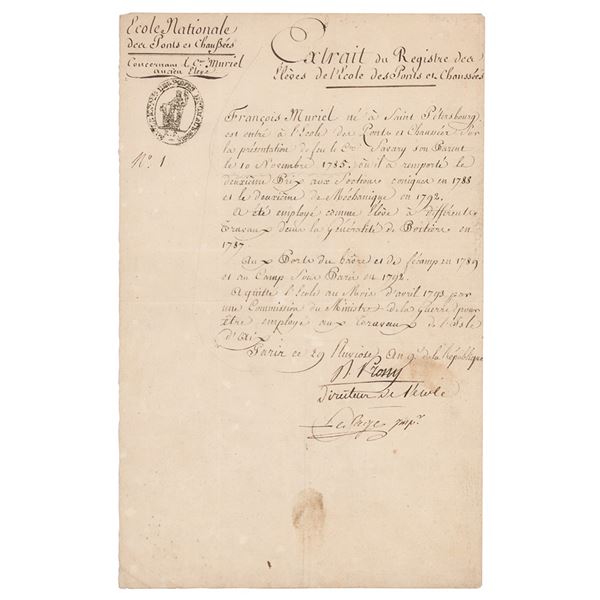 Ecole Nationale
des Ponts et Chaussées
Concernant le Cen Muriel
ancien Elève
No. 1
Extrait du Registre des
Elèves de l'Ecole des Ponts et Chaussées
François Muriel né à Saint Pétersbourg
est entré à l'Ecole des Ponts et Chaussées sur
la présentation de feu le Cen Savary son Parent
le 10 Novembre 1785, où il a remporté le
deuxième Prix aux Sections coniques en 1788
et le deuxième de Méchanique en 1792.
A été employé comme Elève à différents
travaux dans la Généralité de Poitiers en
1787.
Aux Ports du hâvre et de fécamp en 1789
et au Camp sous Paris en 1792.
A quitté l'Ecole au Mois d'avril 1793 par
une Commission du Ministre de la Guerre pour
être employé aux travaux de l'Isle
d'Aix
Paris ce 29 Pluviose An 9e. de la République
Prony
Directeur de l'école
Le Sage inspr.